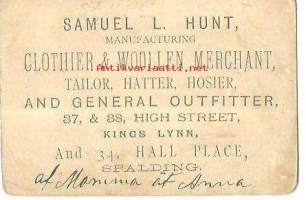 SAMUEL L. HUNT,
MANUFACTURING
CLOTHIER & WOOLLEN MERCHANT,
antikvariaatti.net
TAILOR, HATTER, HOSIER,
AND GENERAL OUTFITTER,
37, & 38, HIGH STREET,
KINGS LYNN,
And 34, HALL PLACE,
SPALDING.
af Mamma at Anna